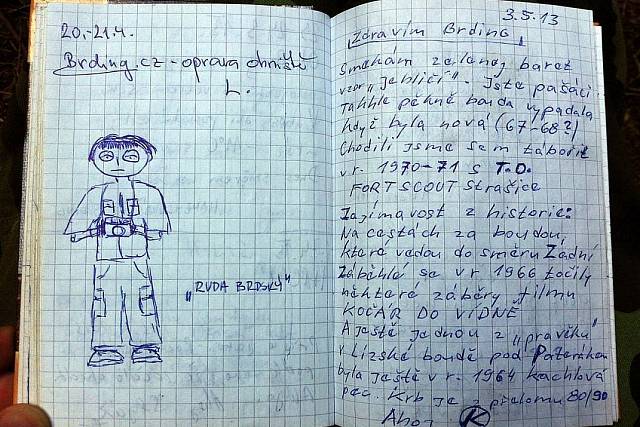 20.-21.4.
Brding.cz - oprava ohniště
L.
"RUDA BRDSKÝ"
3.5.13
Zdravím Brdino,
Smekám zelenej baret
vzor "jehličí". Jste pašáci.
Takhle pěkně bouda vypadala
když byla nová (67-68?)
Chodili jsme sem tábořit
v r. 1970-71 s T.O.
FORT SCOUT Strašice
Zajímavost z historie:
Na cestách za boudou,
které vedou do směru Zadní
Záběhlé se v r. 1966 točily
některé záběry filmu
KOČÁR DO VÍDNĚ
A ještě jednou z "pravěku"
v Lízské boudě pod Paterákem
byla ještě v r. 1964 kachlová
pec. Krb je z přelomu 80/90
Ahoj K